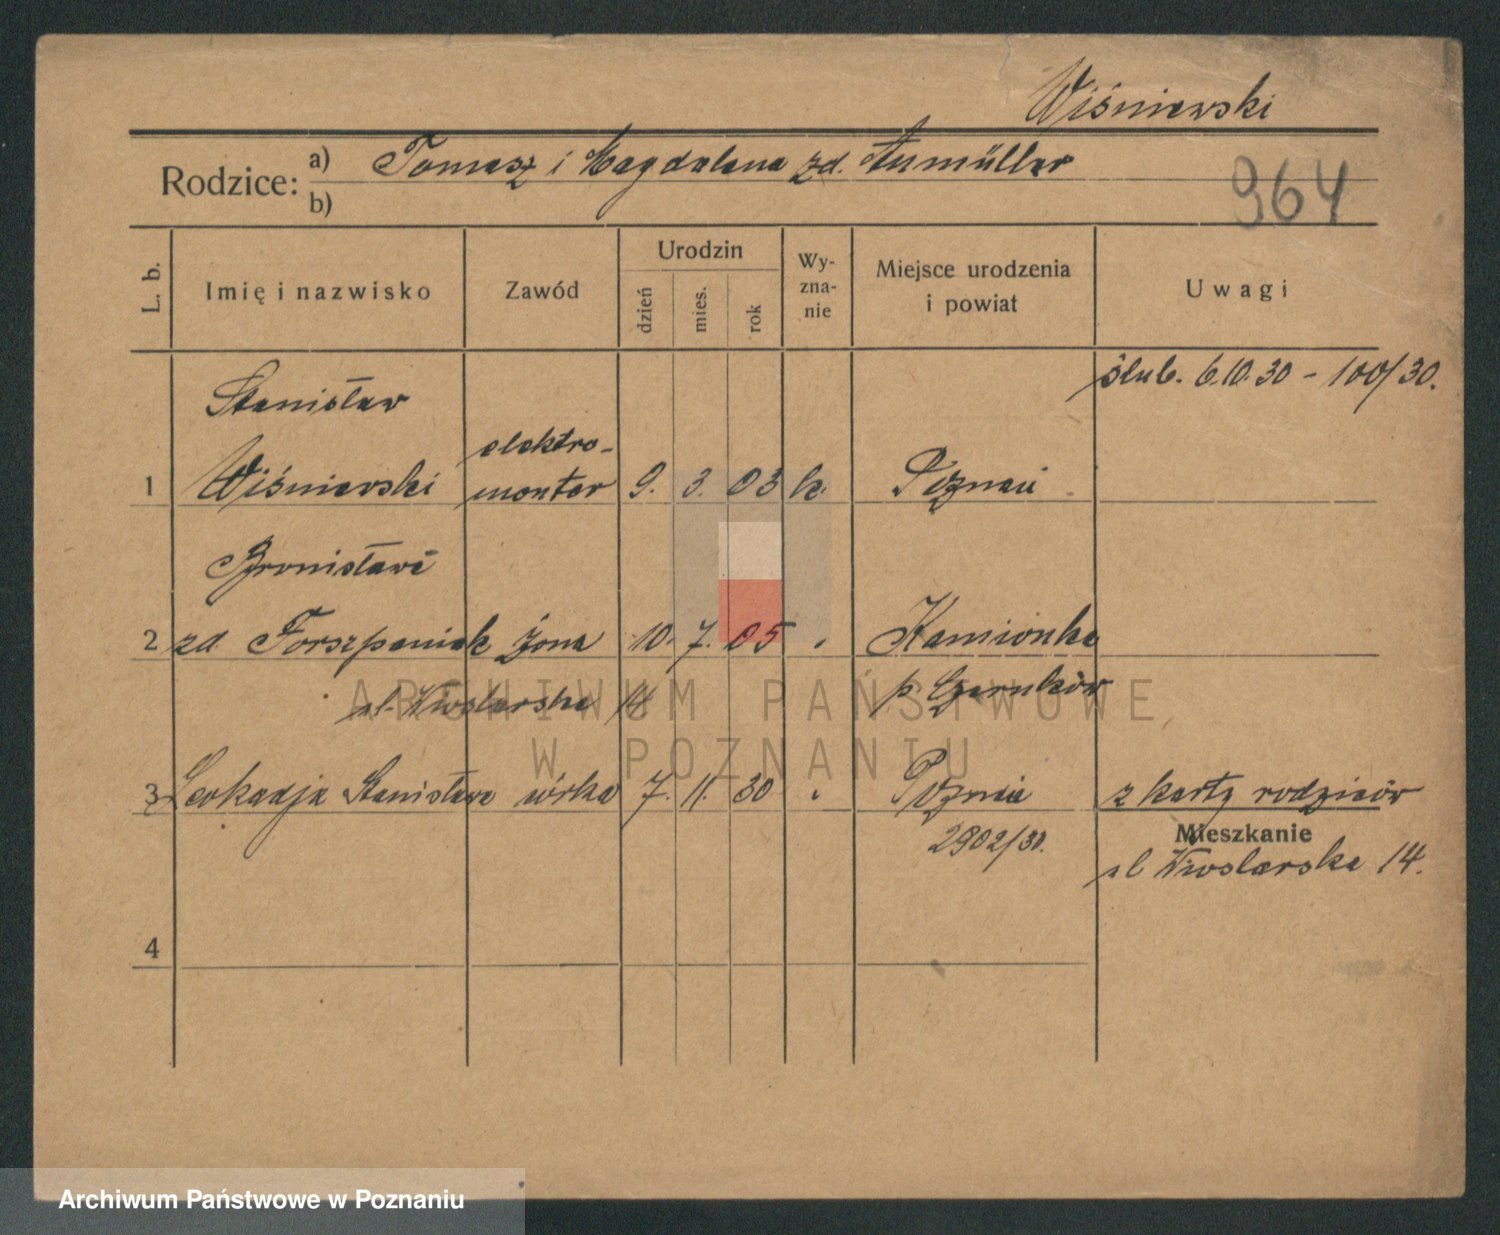 Wiśniewski
Rodzice: a) Tomasz i Magdalena zd. Aumüller
b)
964
L. b.
Imię i nazwisko
Zawód
Urodzin
dzień
mies.
rok
Wy-
zna-
nie
Miejsce urodzenia
i powiat
Uwagi
ślub. 6.10.30 – 100/30.
Stanisław
elektro-
1 Wiśniewski monter 9. 3. 03 k. Poznań
Bronisława
2 zd Forszpaniak żona 10. 7. 05 Kamionka
ul. Wioślarska 14 p. Czarnków
ARCHIWUM PAŃSTWOWE
W POZNANIU
3 Leokadja Stanisława córka 7. 11. 30 Poznań z karty rodziców
2902/30.
Mieszkanie
ul Wioślarska 14.
4
Archiwum Państwowe w Poznaniu